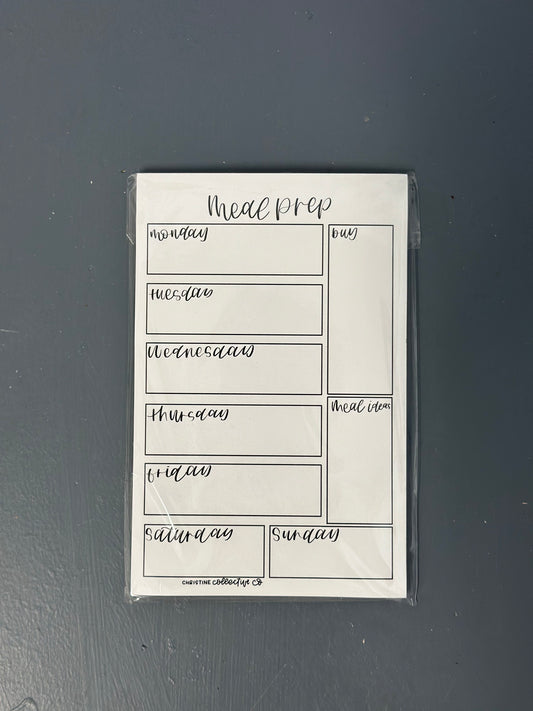 meal prep
monday
tuesday
wednesday
thursday
friday
saturday
sunday
buy
meal ideas
CHRISTINE collective co